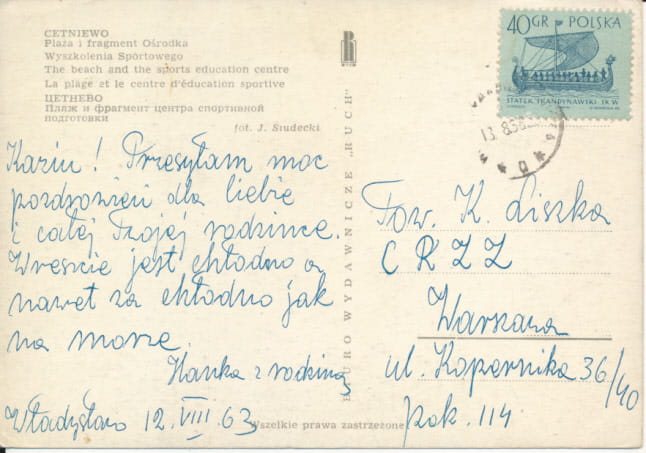 CETNIEWO
Plaża i fragment Ośrodka
Wyszkolenia Sportowego
The beach and the sports education centre
La plage et le centre d'éducation sportive
ЦЕТНЕВО
Пляж и фрагмент центра спортивной
подготовки
fot. J. Siudecki
Kaziu! Przesyłam moc
pozdrowień dla Ciebie
i całej Twojej rodzince.
Wreszcie jest chłodno a
nawet za chłodno jak
na morze.
Hanka z rodziną
Władysławo 12.VIII 63
BIURO WYDAWNICZE „RUCH"
Wszelkie prawa zastrzeżone
40GR POLSKA
STATEK SKANDYNAWSKI IX W.
13.8.63
Tow. K. Liszka
CRZZ
Warszawa
ul. Kopernika 36/40
pok. 114